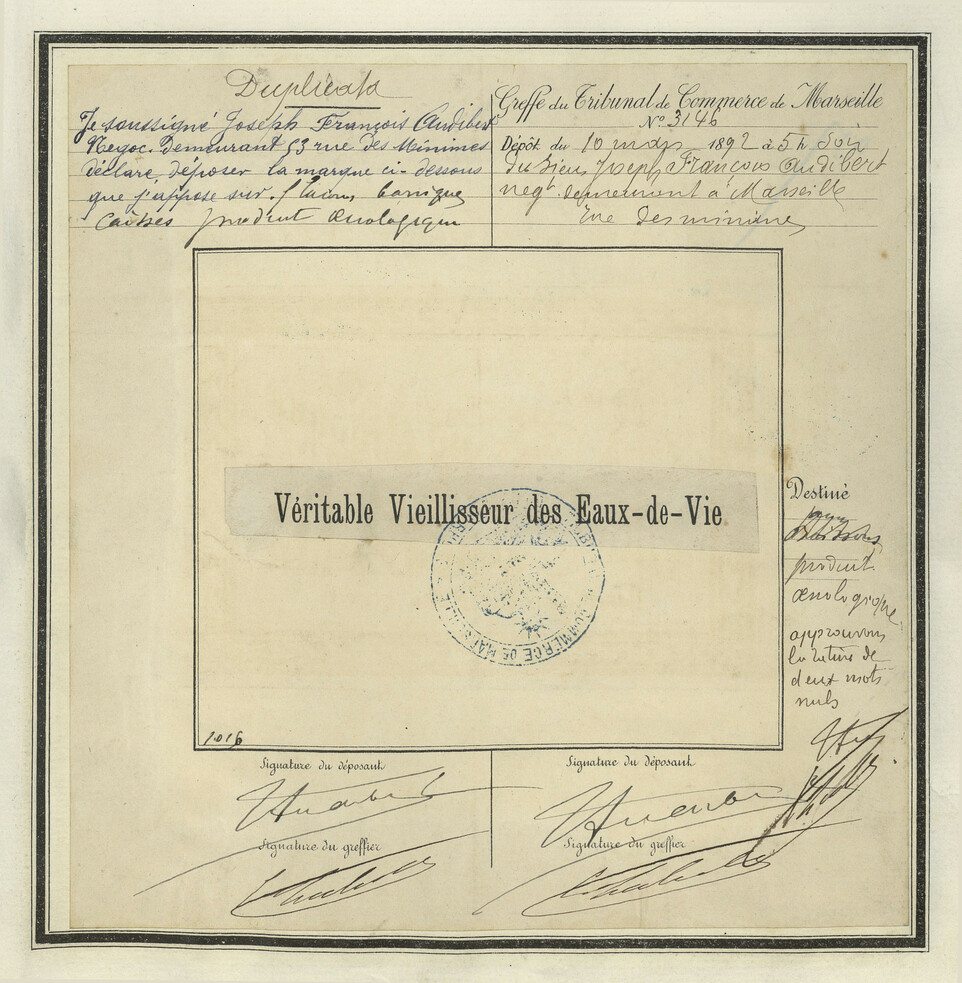 Duplicata
Je soussigné Joseph François Audibert
Negoc. Demeurant 53 rue des Minimes
déclare déposer la marque ci-dessous
que j'appose sur flacons bariques
caisses produit œnologique
Greffe du Tribunal de Commerce de Marseille
N° 3146
Dépôt du 10 mars 1892 à 5h Soir
du Sieur Joseph François Audibert
negt. demeurant à Marseille
rue des minimes
Véritable Vieillisseur des Eaux-de-Vie
COMMERCE DE MARSEILLE
Destiné
pour
produit
œnologique
approuvons
la rature de
deux mots
nuls
1016
Signature du déposant
Signature du greffier
Signature du déposant
Signature du greffier